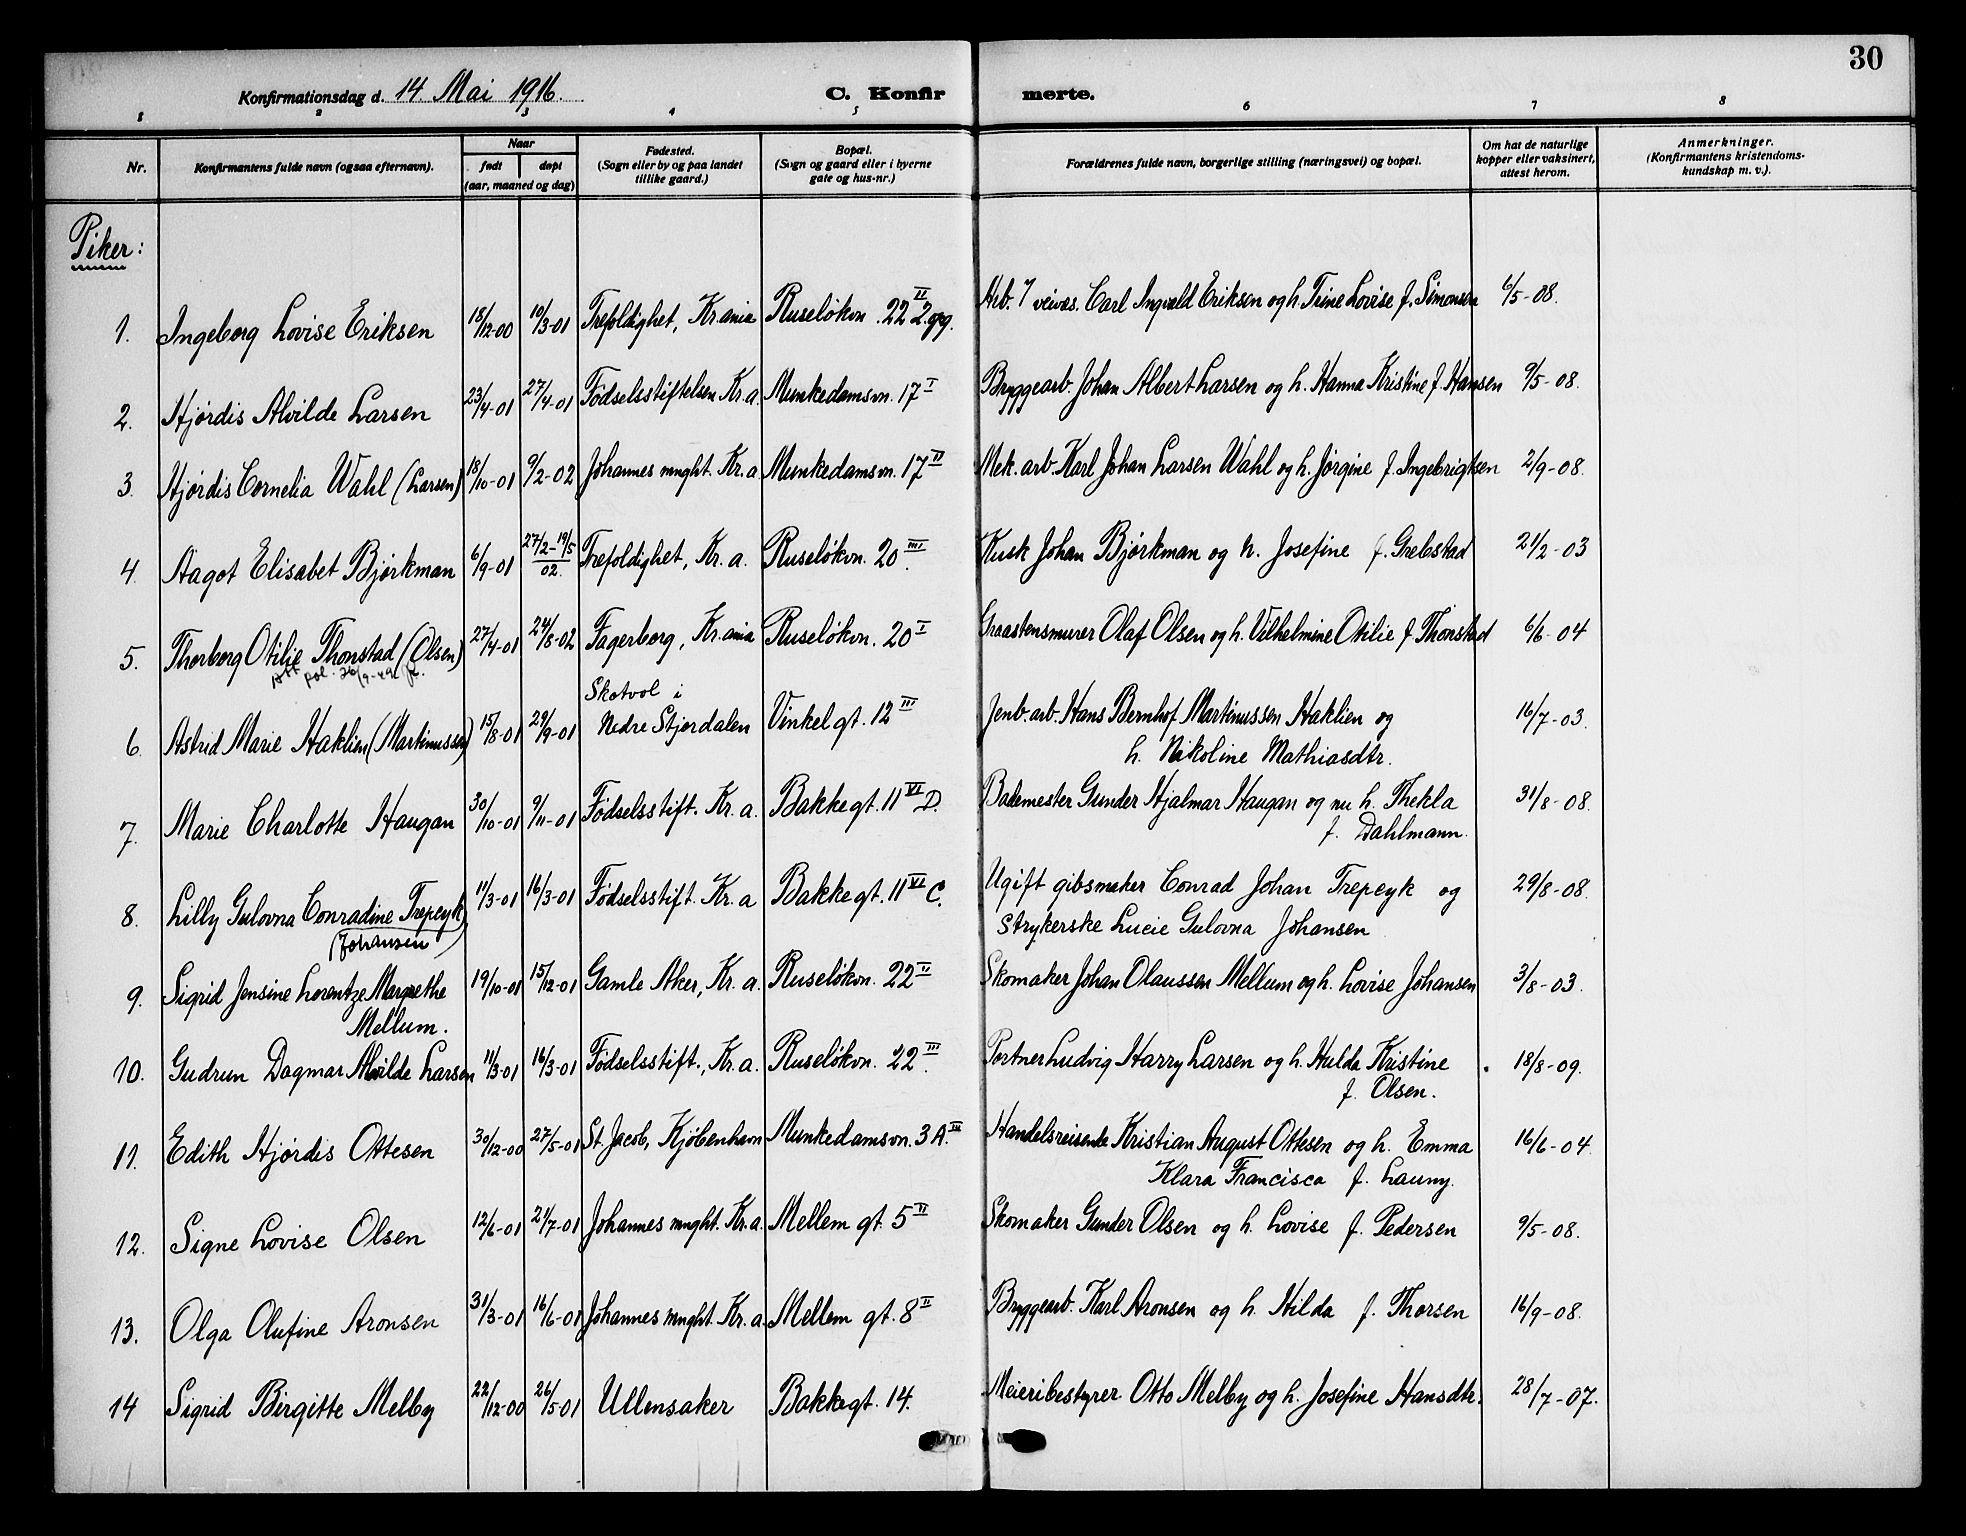 30
Konfirmationsdag d. 14 Mai 1916. C. Konfirmerte.
1 2 3 4 5 6 7 8
Nr. Konfirmantens fulde navn (ogsaa efternavn). Naar født døpt (aar, maaned og dag) Fødested. (Sogn eller by og paa landet tillike gaard.) Bopæl. (Sogn og gaard eller i byerne gate og hus-nr.) Forældrenes fulde navn, borgerlige stilling (næringsvei) og bopæl. Om hat de naturlige kopper eller vaksinert, attest herom. Anmerkninger. (Konfirmantens kristendoms-kundskap m. v.).
Piker:
1. Ingeborg Lovise Eriksen 18/12-00 10/3-01 Trefoldighet, Kr.ania Ruseløkvn. 22 II 2. opg. Arb. veives. Carl Ingvald Eriksen og h. Trine Lovise f. Simonsen 6/5-08.
2. Hjørdis Alvilde Larsen 23/4-01 27/4-01 Fødselsstiftelsen Kr.a. Munkedamsvn. 17 I Bryggearb. Johan Albert Larsen og h. Hanna Kristine f. Hansen 9/5-08.
3. Hjørdis Cornelia Wahl (Larsen) 18/10-01 9/2-02 Johannes mnght. Kr.a. Munkedamsvn. 17 II Mek. arb. Karl Johan Larsen Wahl og h. Jørgine f. Ingebrigtsen 2/9-08.
4. Aagot Elisabet Bjørkman 6/9-01 27/2-19/5 02. Trefoldighet, Kr.a. Ruseløkvn. 20 III Kusk Johan Bjørkman og h. Josefine f. Grebstad 21/2-03
5. Thorborg Otilie Thonstad (Olsen) 27/4-01 24/8-02 Fagerborg, Kr.ania Ruseløkvn. 20 I Graastensmurer Olaf Olsen og h. Vilhelmine Otilie f. Thonstad 6/6-04
att pol. 26/9-49
6. Astrid Marie Haklien (Martinussen) 15/8-01 29/9-01 Skatval i Nedre Stjørdalen Vinkelgt. 12 III Jenb. arb. Hans Bernhof Martinussen Haklien og 16/7-03.
h. Nikoline Mathiasdtr.
7. Marie Charlotte Haugan 30/10-01 9/11-01 Fødselsstift. Kr.a. Bakkegt. 11 VI D. Bademester Gunder Hjalmar Haugan og nu h. Thekla 31/8-08.
f. Dahlmann.
8. Lilly Gulovna Conradine Trepeyk 11/3-01 16/3-01 Fødselsstift. Kr.a Bakkegt. 11 VI C. Ugift gibsmaker Conrad Johan Trepeyk og 29/8-08.
(Johansen) Strykerske Lucie Gulovna Johansen
9. Sigrid Jensine Lorentze Margrethe 19/10-01 15/12-01 Gamle Aker, Kr.a. Ruseløkvn. 22 II Skomaker Johan Olaussen Mellum og h. Lovise Johansen 3/8-03.
Mellum.
10. Gudrun Dagmar Alvilde Larsen 11/3-01 16/3-01 Fødselsstift., Kr.a. Ruseløkvn. 22 III Portner Ludvig Harry Larsen og h. Hulda Kristine 18/8-09.
f. Olsen.
11. Edith Hjørdis Ottesen 30/12-00 27/5-01 St. Jacob, Kjøbenhavn Munkedamsvn. 3 A. III Handelsreisende Kristian August Ottesen og h. Emma 16/6-04.
Klara Francisca f. Launy.
12. Signe Lovise Olsen 12/6-01 21/7-01 Johannes mnght. Kr.a. Mellem gt. 5 II Skomaker Gunder Olsen og h. Lovise f. Pedersen 9/5-08.
13. Olga Olufine Aronsen 31/3-01 16/6-01 Johannes mnght. Kr.a. Mellem gt. 8 II Bryggearb. Karl Aronsen og h. Hilda f. Thorsen 16/9-08.
14 Sigrid Birgitte Melby 22/12-00 26/5-01 Ullensaker Bakkegt. 14. Meieribestyrer Otto Melby og h. Josefine Hansdtr. 28/7-07.